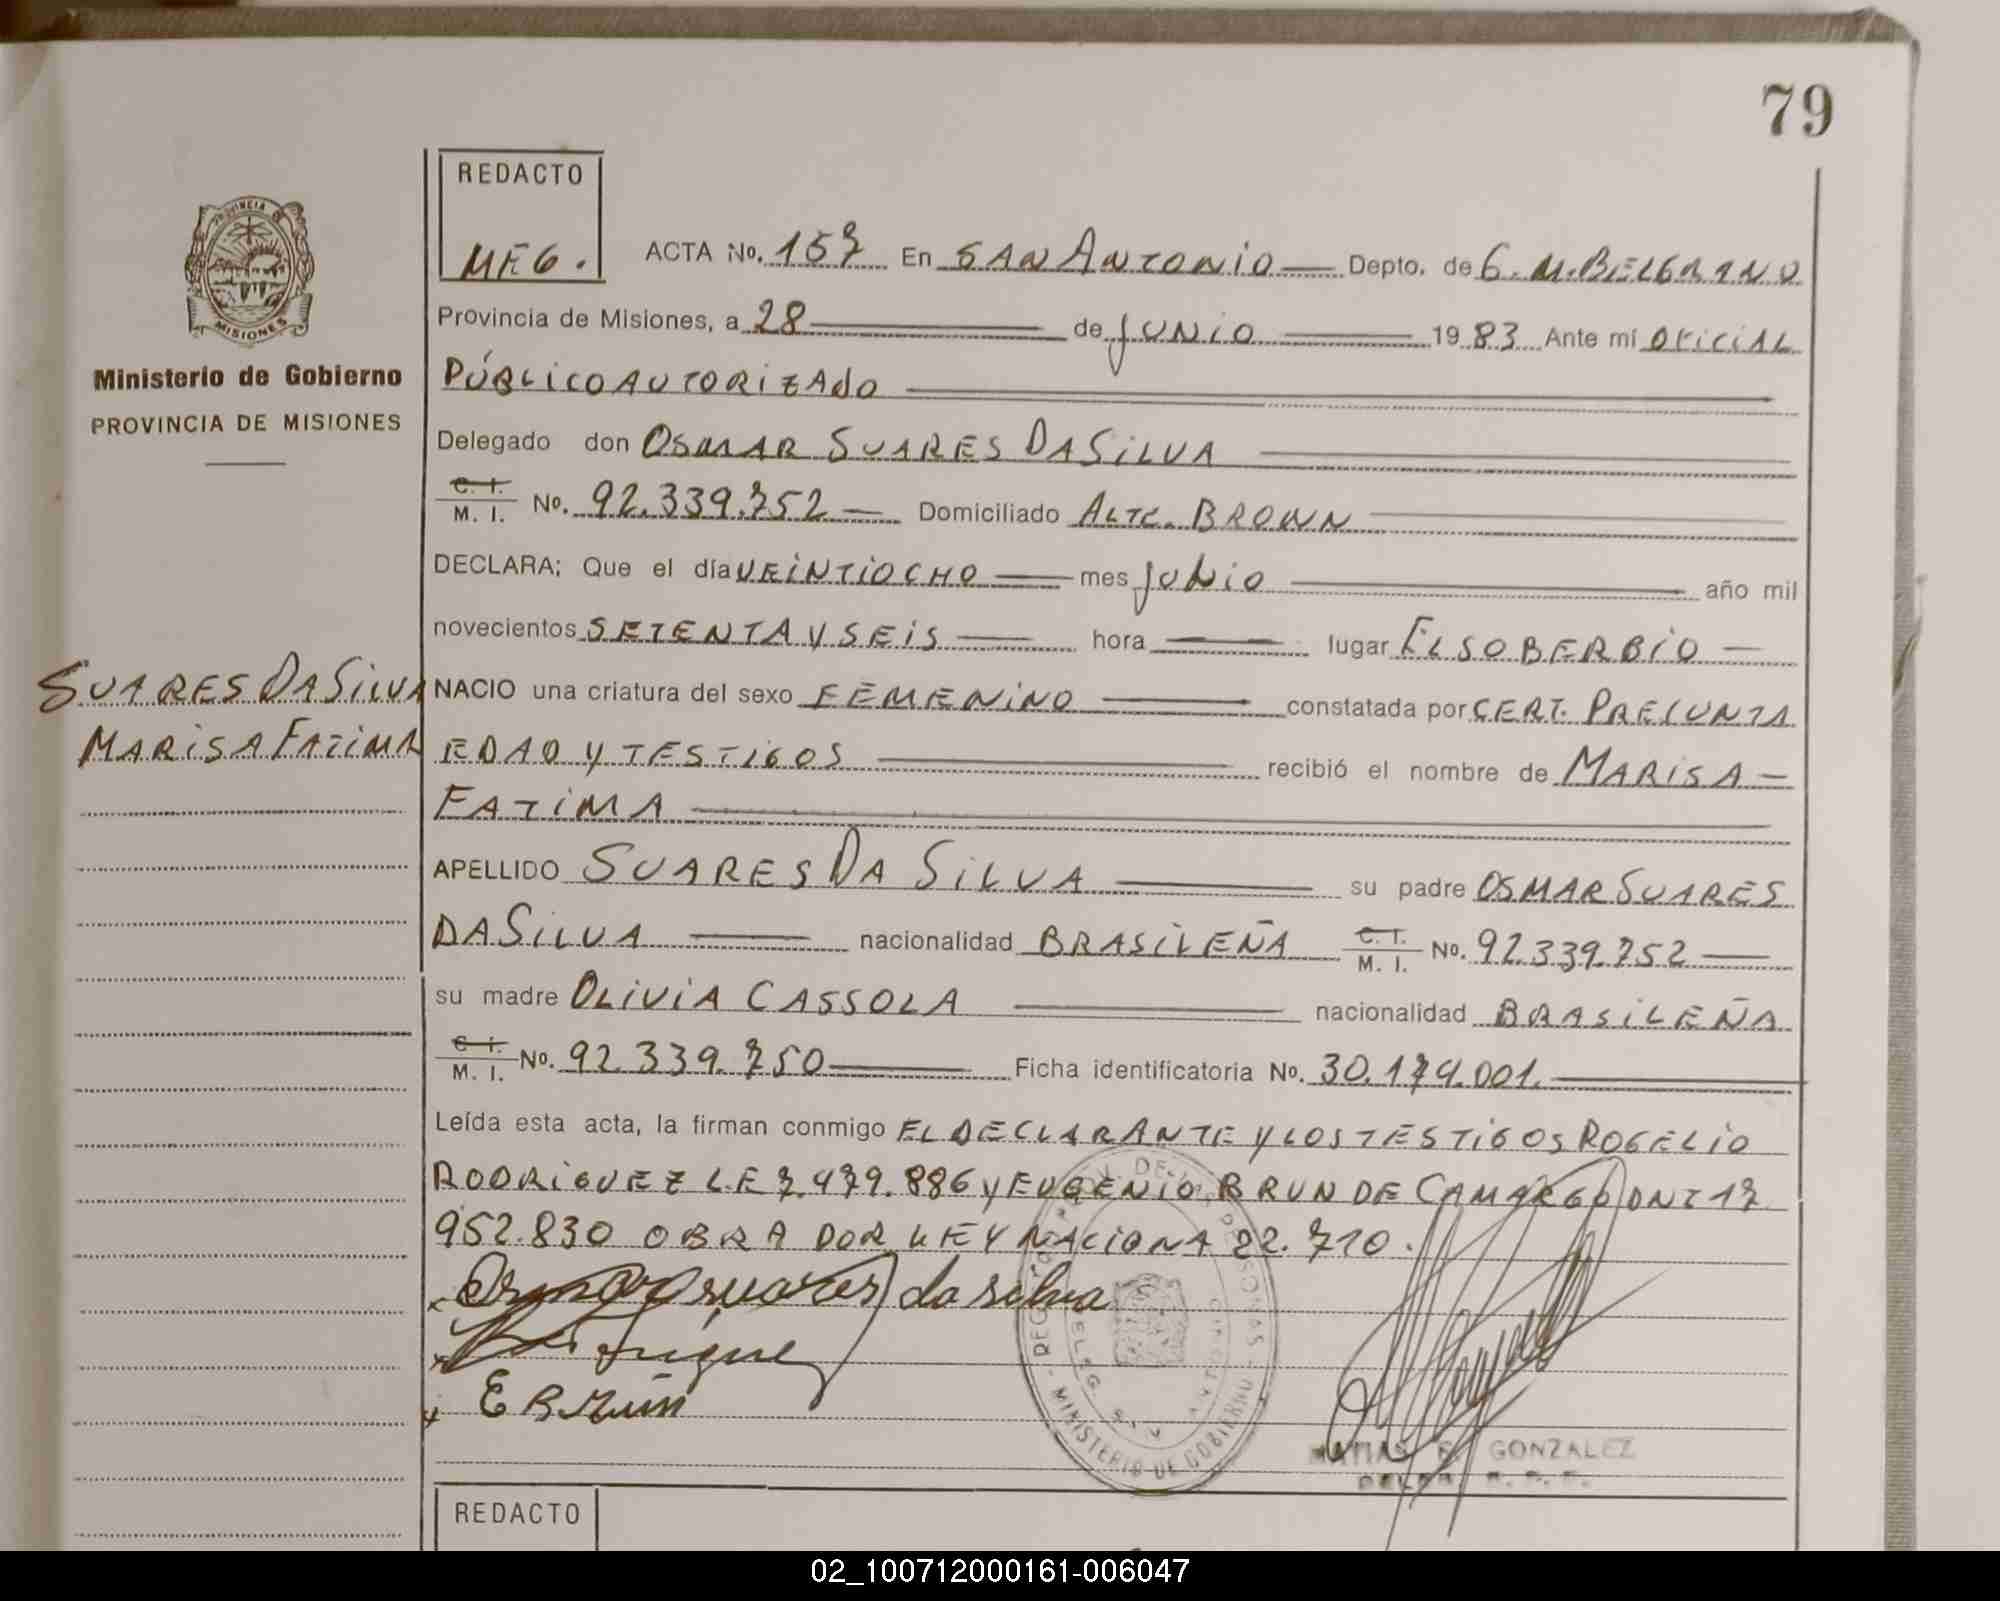 79
REDACTO
MEG.
ACTA No. 157 En SAN ANTONIO Depto. de G. M. BELGRANO
PROVINCIA DE
MISIONES
Provincia de Misiones, a 28 de JUNIO 1983 Ante mí OFICIAL
Ministerio de Gobierno
PÚBLICO AUTORIZADO
PROVINCIA DE MISIONES
Delegado don OSMAR SUARES DA SILVA
C. I.
M. I. No. 92.339.752 Domiciliado ALTE. BROWN
DECLARA; Que el día VEINTIOCHO mes JUNIO año mil
novecientos SETENTA Y SEIS hora lugar EL SOBERBIO
SUARES DA SILVA
NACIO una criatura del sexo FEMENINO constatada por CERT. PRECUNTA
MARISA FATIMA
EDAD Y TESTIGOS recibió el nombre de MARISA
FATIMA
APELLIDO SUARES DA SILVA su padre OSMAR SUARES
DA SILVA nacionalidad BRASILEÑA C. I. M. I. No. 92.339.752
su madre OLIVIA CASSOLA nacionalidad BRASILEÑA
C. I.
M. I. No. 92.339.750 Ficha identificatoria No. 30.174.001.
Leída esta acta, la firman conmigo EL DECLARANTE Y LOS TESTIGOS ROGELIO
RODRIGUEZ L.E 7.479.886 Y EUGENIO BRUN DE CAMARGO DNI 17
952.830 OBRA DOR LEY NACIONA 22.710.
Osmar suares da silva
E Brun
MINISTERIO DE GOBIERNO
MATIAS E. GONZALEZ
REDACTO
02_100712000161-006047